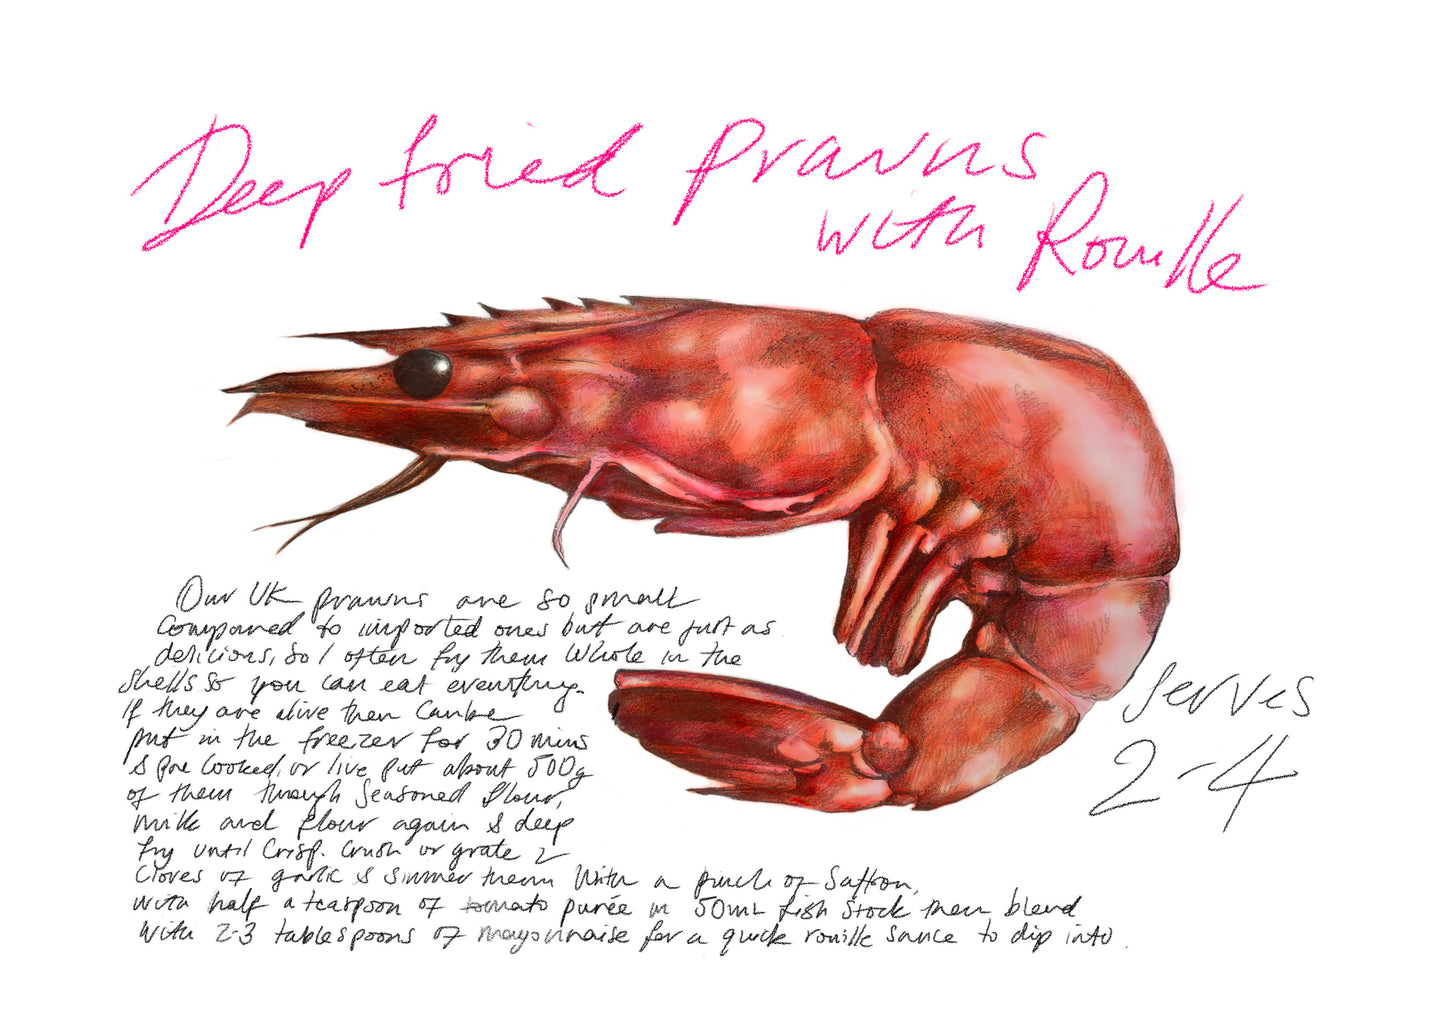 Deep fried prawns
with Rouille
Our UK prawns are so small
compared to imported ones but are just as
delicious, so I often fry them whole in the
shells so you can eat everything.
If they are alive then can be
put in the freezer for 30 mins
& pre cooked, or live put about 500g
of them through seasoned flour,
milk and flour again & deep
fry until crisp. Crush or grate 2
cloves of garlic & simmer them with a pinch of saffron,
with half a teaspoon of tomato purée in 50ml fish stock then blend
with 2-3 tablespoons of mayonnaise for a quick rouille sauce to dip into.
Serves
2-4